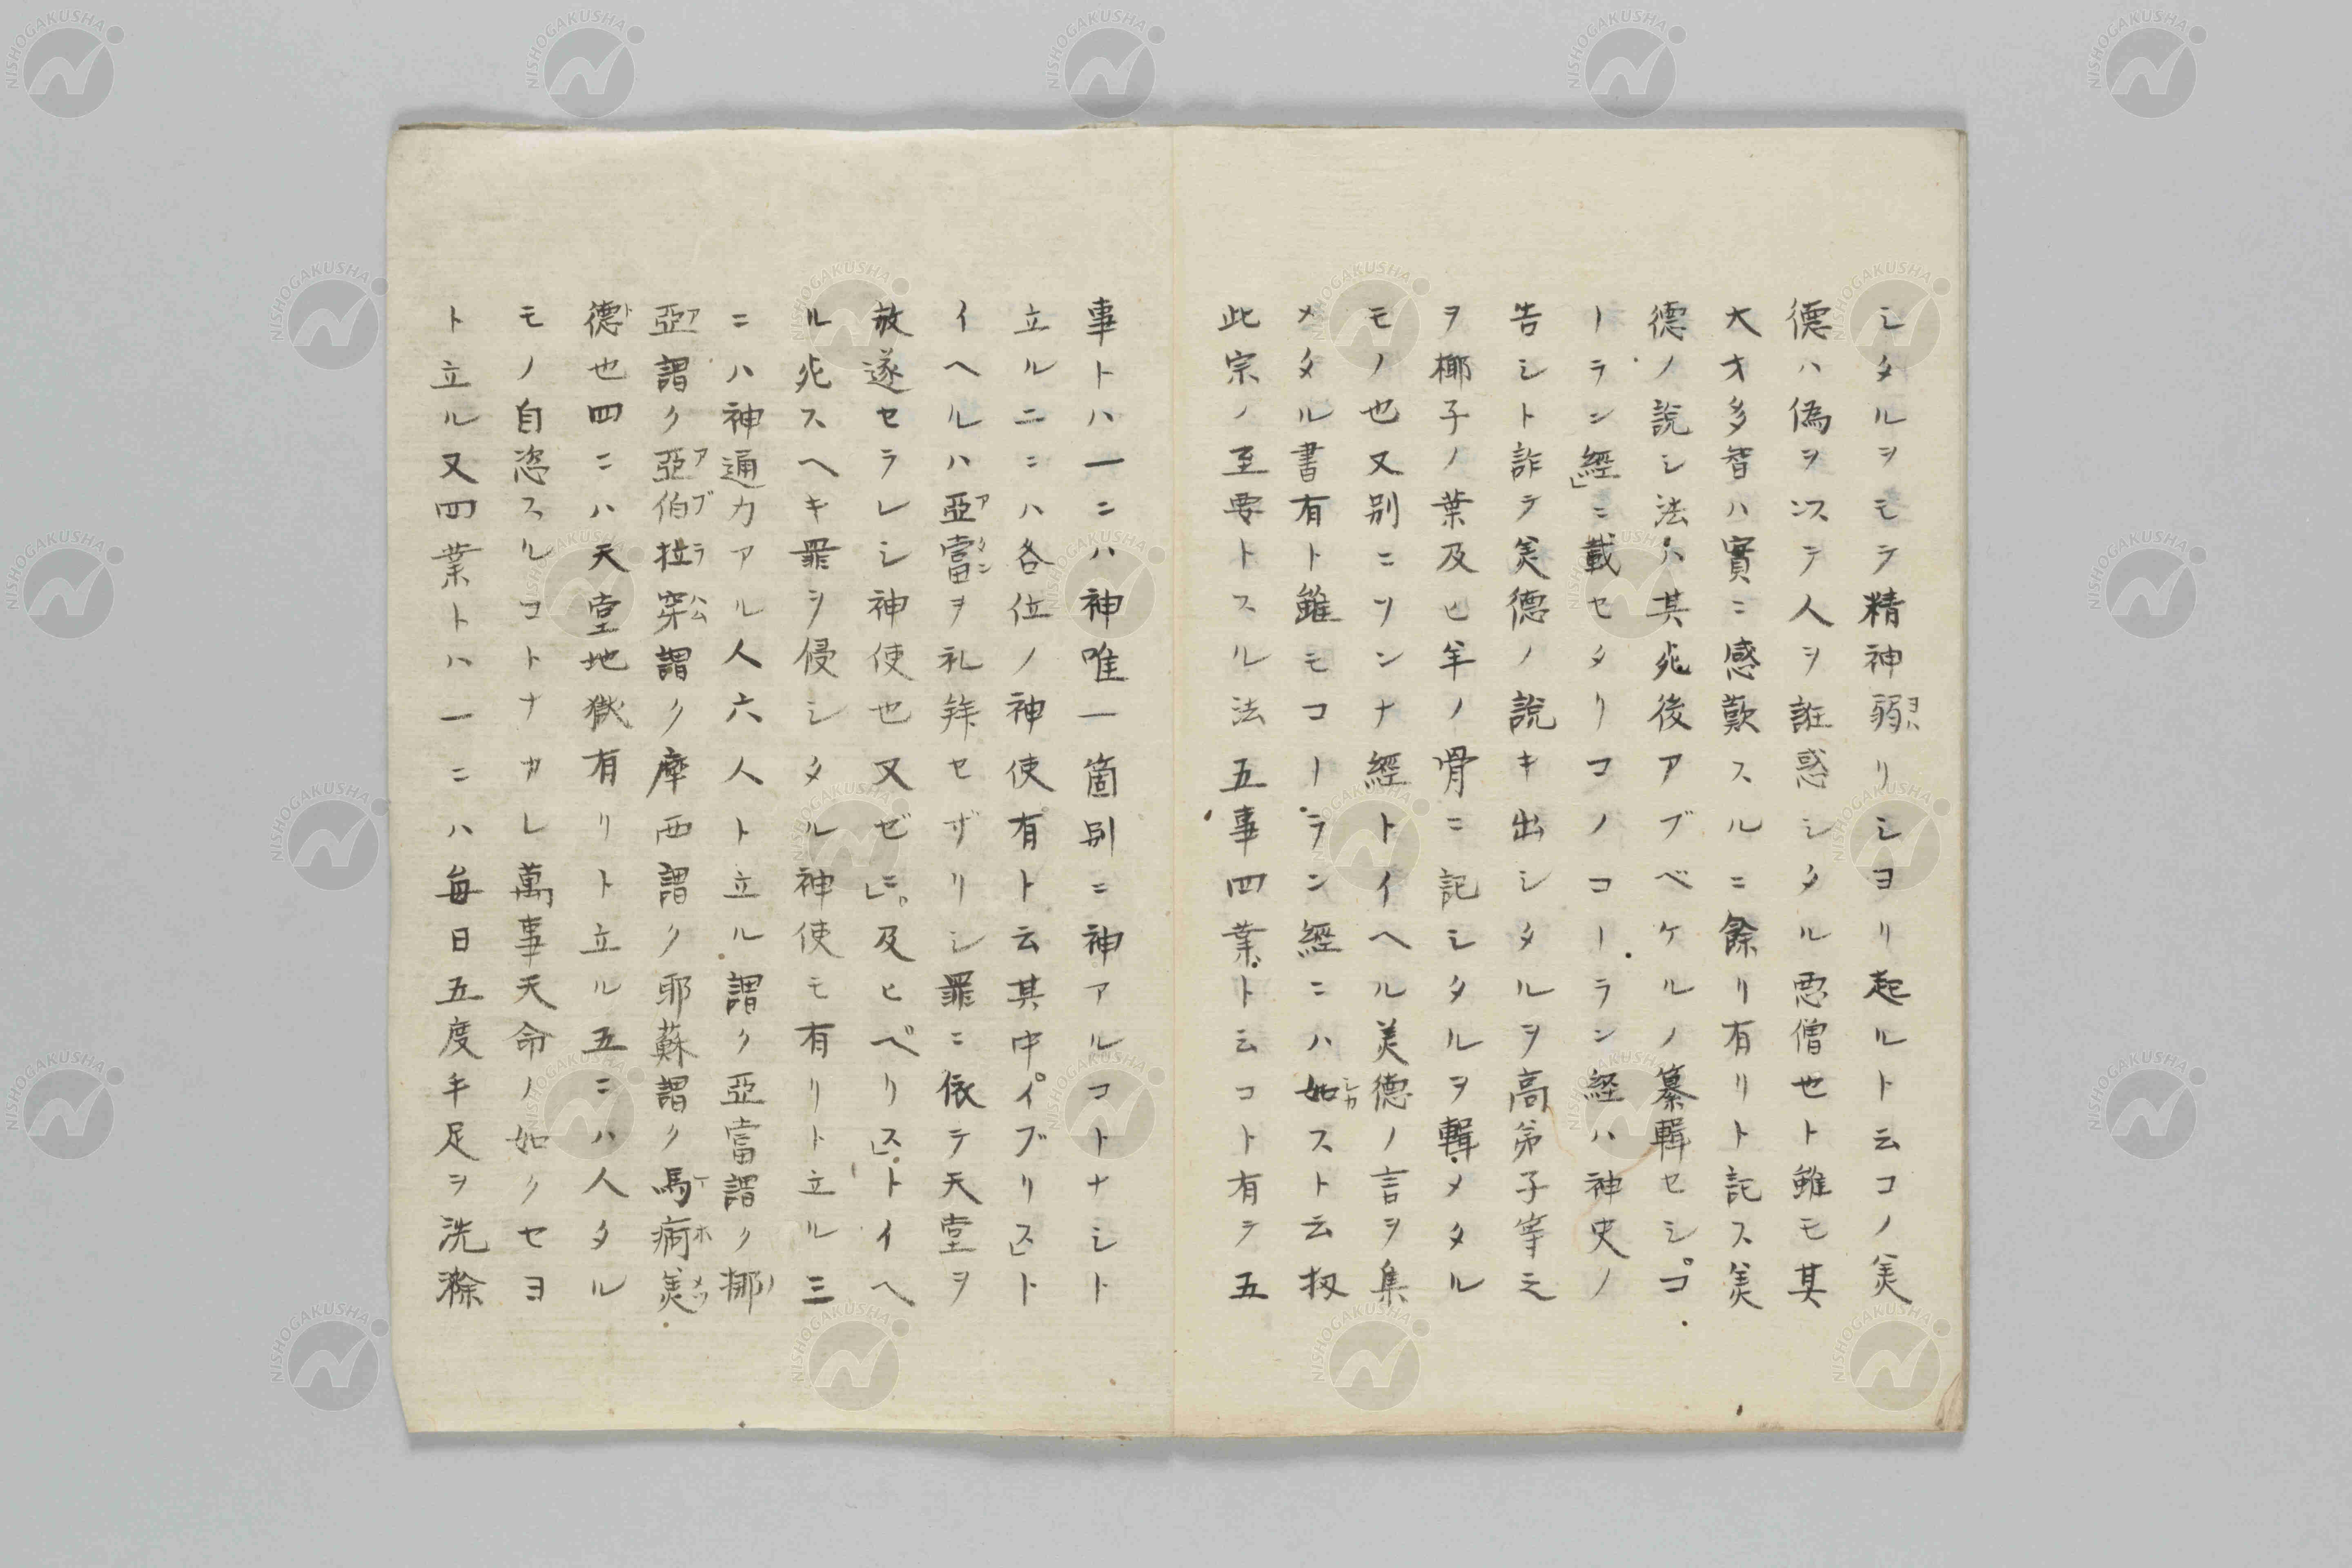 シタルヲモテ精神弱リシヨリ起ルト云コノ美
徳ハ偽ヲ以テ人ヲ誑惑シタル悪僧也ト雖モ其
大才多智ハ實ニ感歎スルニ餘リ有リト記ス美
徳ノ説シ法ハ其死後アブベケルノ纂輯セシコ
ーラン經ニ載セタリコノコーラン経ハ神史ノ
告シト詐テ美徳ノ説キ出シタルヲ高弟子等之
ヲ椰子ノ葉及ヒ羊ノ骨ニ記シタルヲ輯メタル
モノ也又別ニソンナ經トイヘル美徳ノ言ヲ集
メタル書有ト雖モコーラン經ニハ如ストム扨
此宗ノ至要トスル法五事四業ト云コト有テ五
事トハ一ニハ神唯一箇別ニ神アルコトナシト
立ル二ニハ各位ノ神使有ト云其中イブリストト
イヘルハ亞當ヲ礼拜セザリシ罪ニ依テ天堂ヲ
放逐セラレシ神使也又ゼニ及ヒペリストイヘ
ル死スヘキ罪ヲ侵シタル神使モ有リト立ル三
ニハ神通力アル人六人ト立ル謂ク亞當謂ク挪
亞謂ク亞伯拉罕謂ク摩西謂ク耶蘇謂ク馬痾美
徳也四ニハ天堂地獄有リト立ル五ニハ人タル
モノ自恣スルコトナカレ萬事天命ノ如クセヨ
ト立ル又四業トハ一ニハ毎日五度手足ヲ洗滌